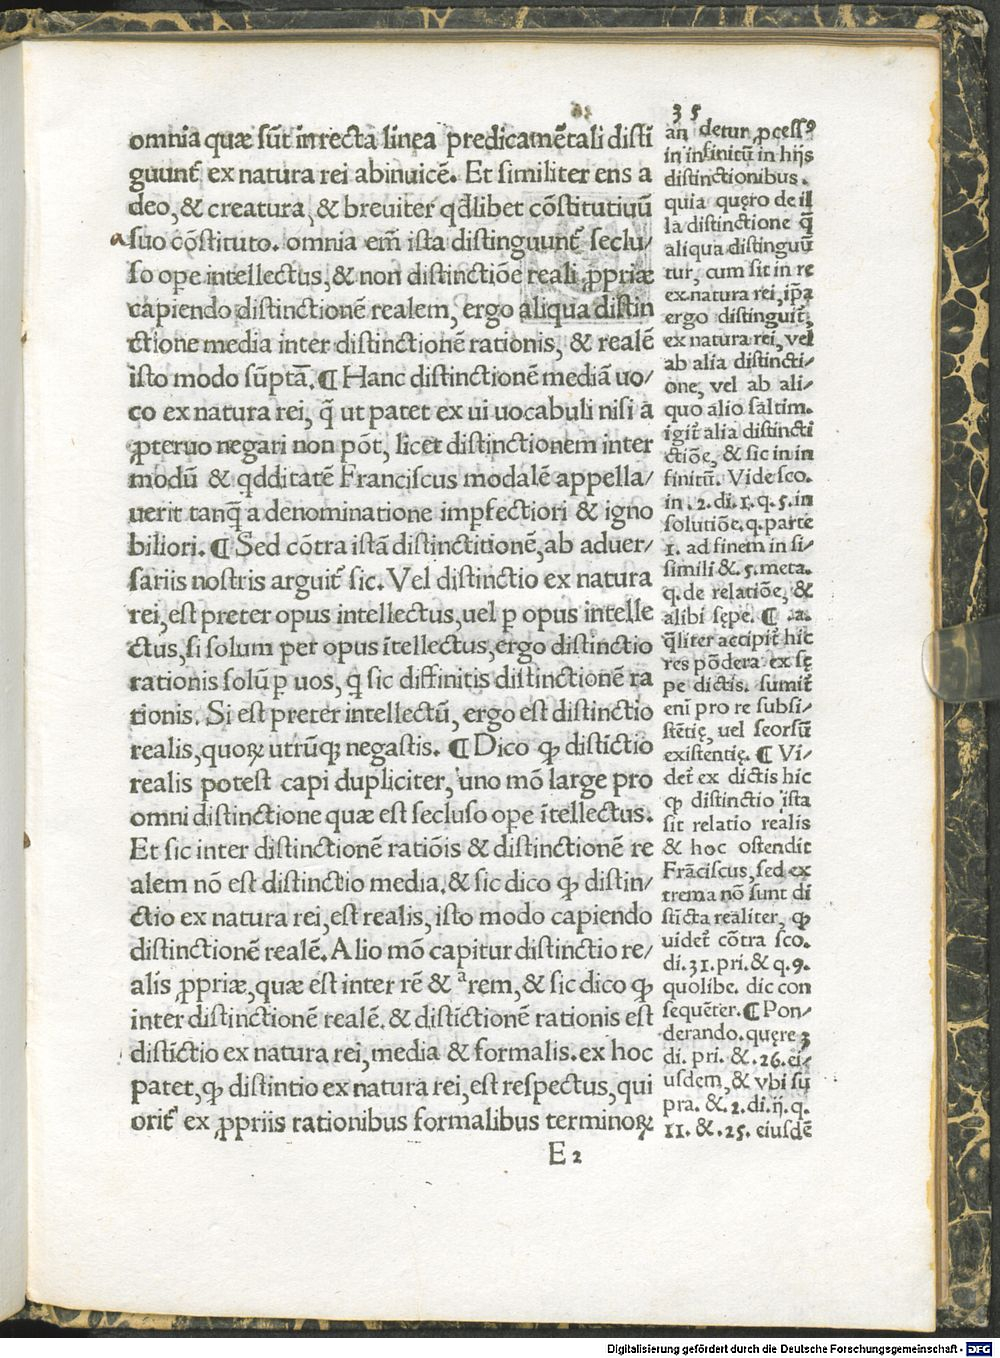 35
omnia quæ sũt in recta linea predicamẽtali disti
guunt᷑ ex natura rei abinuicẽ. Et similiter ens a
deo, & creatura, & breuiter qd̃libet cõstitutiuũ
a suo cõstituto. omnia em̃ ista distinguunt᷑ seclu/
so ope intellectus, & non distinctiõe reali ꝓpriæ
capiendo distinctionẽ realem, ergo aliqua distin
ctione media inter distinctionẽ rationis, & realẽ
isto modo sũptã. ¶ Hanc distinctionẽ mediã uo/
co ex natura rei, q̃ ut patet ex ui uocabuli nisi a
ꝓteruo negari non põt, licet distinctionem inter
modũ & qdditatẽ Franciscus modalẽ appella/
uerit tanq̃ a denominatione impfectiori & igno
biliori. ¶ Sed cõtra istã distinctitionẽ, ab aduer/
sariis nostris arguit᷑ sic. Vel distinctio ex natura
rei, est preter opus intellectus, uel p opus intelle
ctus, si solum per opus ĩtellectus, ergo distinctio
rationis solũ p uos, q̃ sic diffinitis distinctionẽ ra
tionis. Si est preter intellectũ, ergo est distinctio
realis, quoꝝ utrũq; negastis. ¶ Dico ꝙ distictio
realis potest capi dupliciter, uno mõ large pro
omni distinctione quæ est secluso ope ĩtellectus.
Et sic inter distinctionẽ ratiõis & distinctionẽ re
alem nõ est distinctio media. & sic dico ꝙ distin/
ctio ex natura rei, est realis, isto modo capiendo
distinctionẽ realẽ. Alio mõ capitur distinctio re/
alis ꝓpriæ, quæ est inter rẽ & ᵃrem, & sic dico ꝙ
inter distinctionẽ realẽ. & distĩctionẽ rationis est
distĩctio ex natura rei, media & formalis. ex hoc
patet, ꝙ distintio ex natura rei, est respectus, qui
orit᷑ ex ꝓpriis rationibus formalibus terminoꝝ
E 2
an detur, ꝓcessꝰ
in infinitũ in hijs
distinctionibus.
quia quęro de il
la distinctione q̃
aliqua distinguũ
tur, cum sit in re
ex natura rei, ip̃a
ergo distinguit᷑,
ex natura rei, vel
ab alia distincti/
one, vel ab ali/
quo alio saltim.
igit᷑ alia distincti
ctiõe, & sic in in
finitũ. Vide sco.
in .2. di. 1. q. 5. in
solutiõe. q. parte
1. ad finem in si/
simili &. 5. meta.
q. de relatiõe, &
alibi sępe. ¶ .a.
q̃liter accipit᷑ hic
res põdera ex sę
pe dictis. sumit᷑
enĩ pro re subsi/
stẽtię, uel seorsũ
existentię. ¶ Vi/
det᷑ ex dictis hic
ꝙ distinctio ista
sit relatio realis
& hoc ostendit
Frãciscus, sed ex
trema nõ sunt di
stĩcta realiter, ꝙ
uidet᷑ cõtra sco.
di. 31. pri. & q. 9.
quolibe. dic con
sequẽter. ¶ Pon/
derando. quęre 3
di. pri. &. 26. ei/
usdem, & vbi sũ
pra. &. 2. di. ij. q.
11. &. 25. eiusdẽ
Digitalisierung gefördert durch die Deutsche Forschungsgemeinschaft - DFG